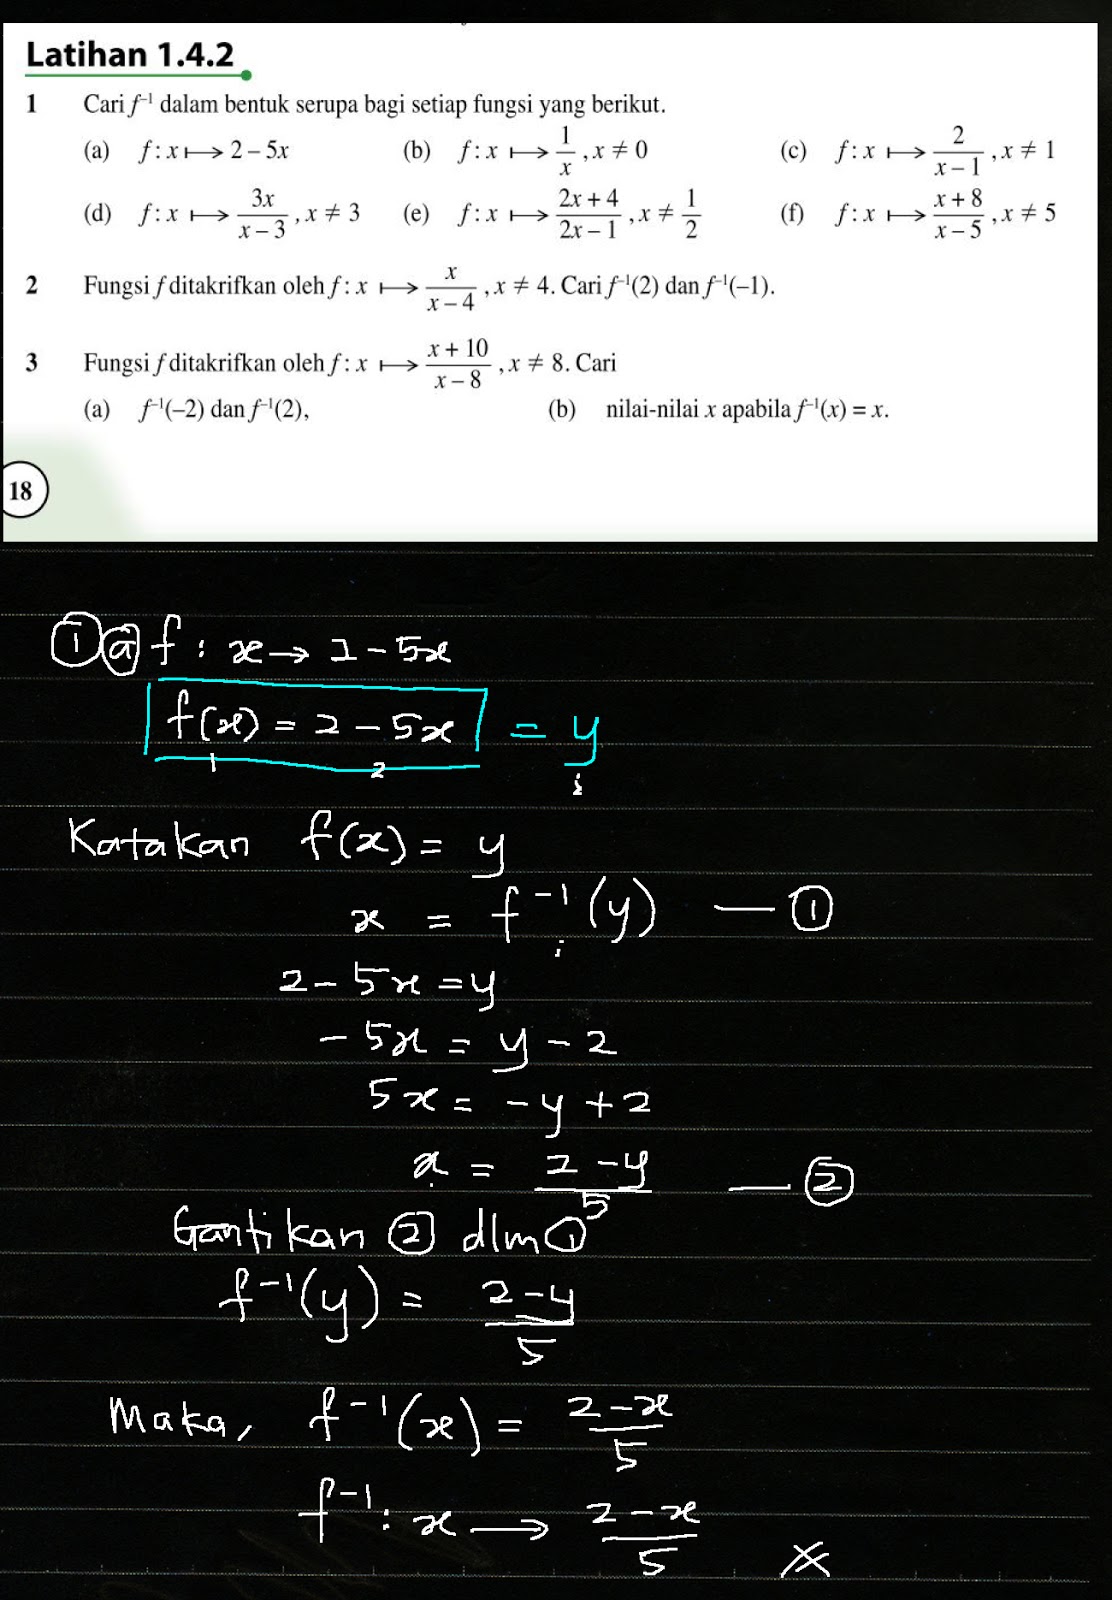 Latihan 1.4.2
1 Cari f⁻¹ dalam bentuk serupa bagi setiap fungsi yang berikut.
(a) f : x ⟼ 2 – 5x (b) f : x ⟼ 1/x , x ≠ 0 (c) f : x ⟼ 2/(x – 1) , x ≠ 1
(d) f : x ⟼ 3x/(x – 3) , x ≠ 3 (e) f : x ⟼ (2x + 4)/(2x – 1) , x ≠ 1/2 (f) f : x ⟼ (x + 8)/(x – 5) , x ≠ 5
2 Fungsi f ditakrifkan oleh f : x ⟼ x/(x – 4) , x ≠ 4. Cari f⁻¹(2) dan f⁻¹(–1).
3 Fungsi f ditakrifkan oleh f : x ⟼ (x + 10)/(x – 8) , x ≠ 8. Cari
(a) f⁻¹(–2) dan f⁻¹(2), (b) nilai-nilai x apabila f⁻¹(x) = x.
18
① ⓐ f : x → 2 – 5x
f(x) = 2 – 5x = y
Katakan f(x) = y
x = f⁻¹(y) — ①
2 – 5x = y
– 5x = y – 2
5x = –y + 2
x = (2 – y)/5 — ②
Gantikan ② dlm ①
f⁻¹(y) = (2 – y)/5
Maka, f⁻¹(x) = (2 – x)/5
f⁻¹ : x → (2 – x)/5